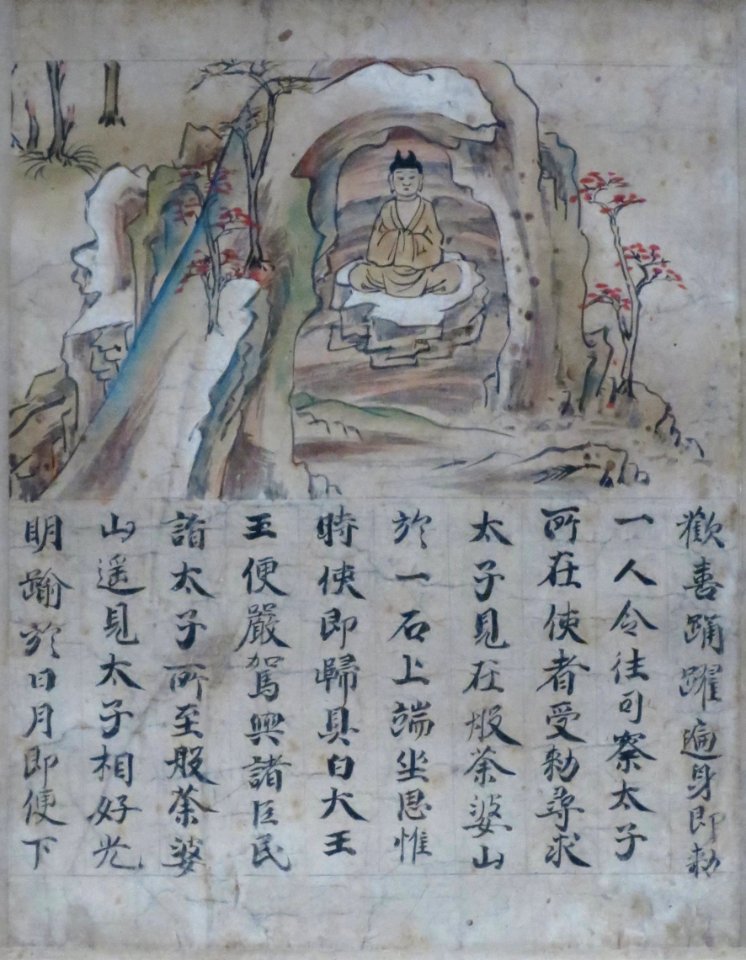 歡喜踊躍遍身即勅
一人令往司察太子
所在使者受勅尋求
太子見在般荼婆山
於一石上端坐思惟
時使即歸具白大王
王便嚴駕與諸臣民
詣太子所至般荼婆
山遥見太子相好光
明踰於日月即便下